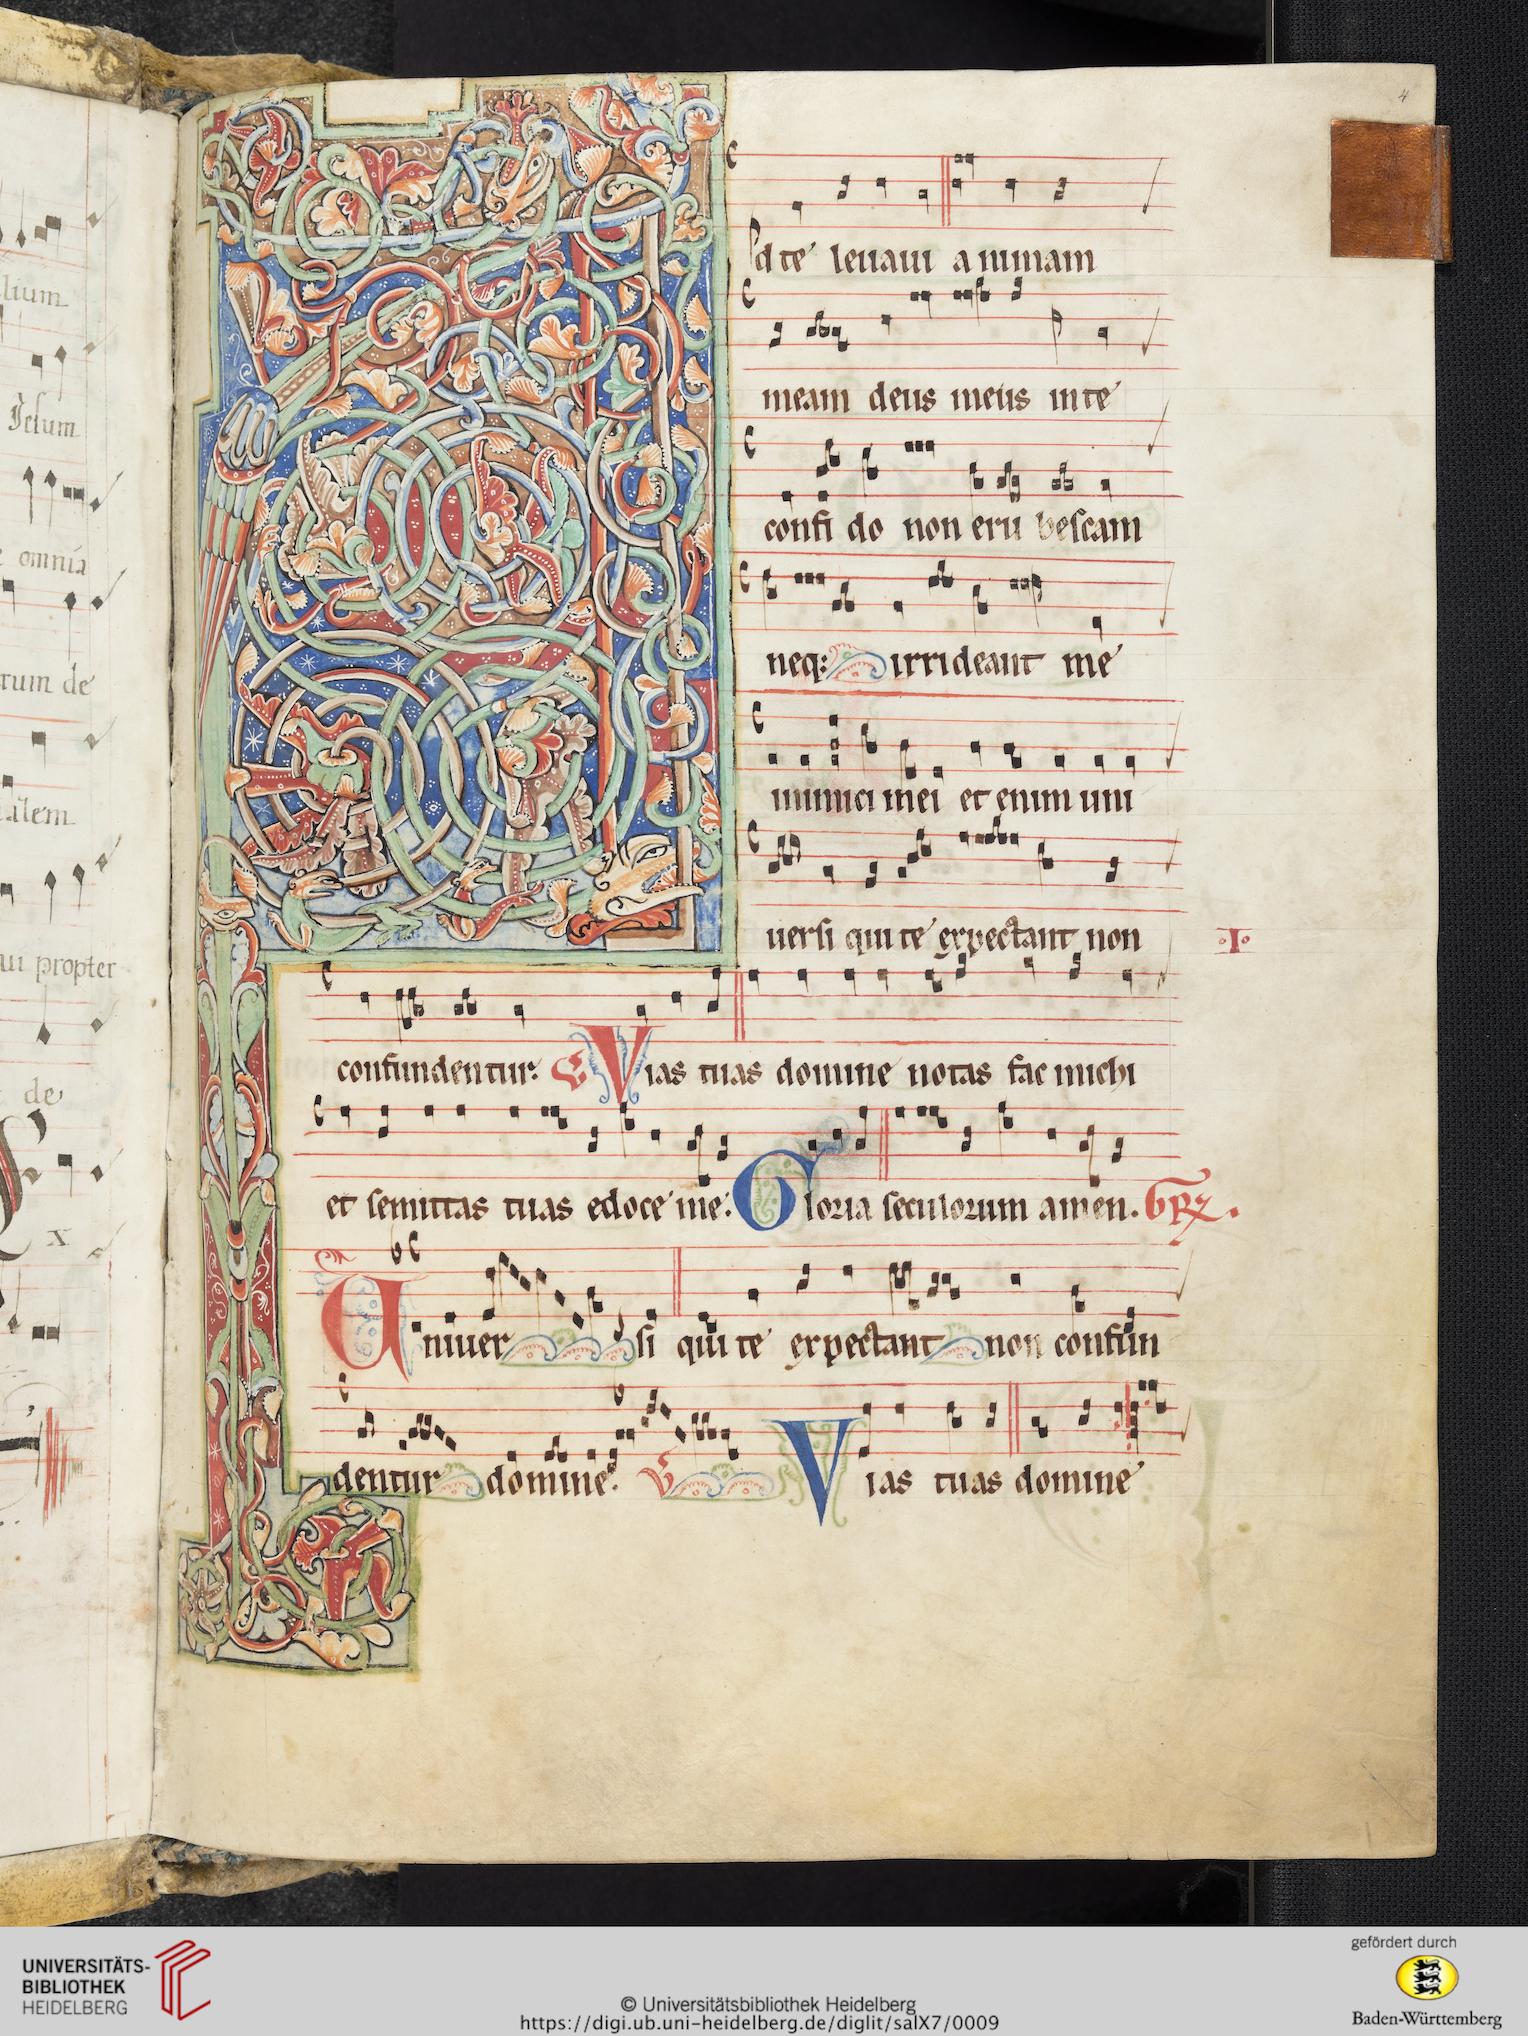 lium
Jesum
omnia
rum de
alem
ui propter
de
x
4
Ad te leuaui animam
meam deus meus inte
confi do non eru bescam
neq: irrideant me
inimici mei et enim uni
uersi qui te expectant non
·I·
confundentur. V Vias tuas domine notas fac michi
et semitas tuas edoce me: Gloria seculorum amen. GR.
Uniuer si qui te expectant non confun
dentur domine. V Vias tuas domine
UNIVERSITÄTS-
BIBLIOTHEK
HEIDELBERG
© Universitätsbibliothek Heidelberg
https://digi.ub.uni-heidelberg.de/diglit/salX7/0009
gefördert durch
Baden-Württemberg